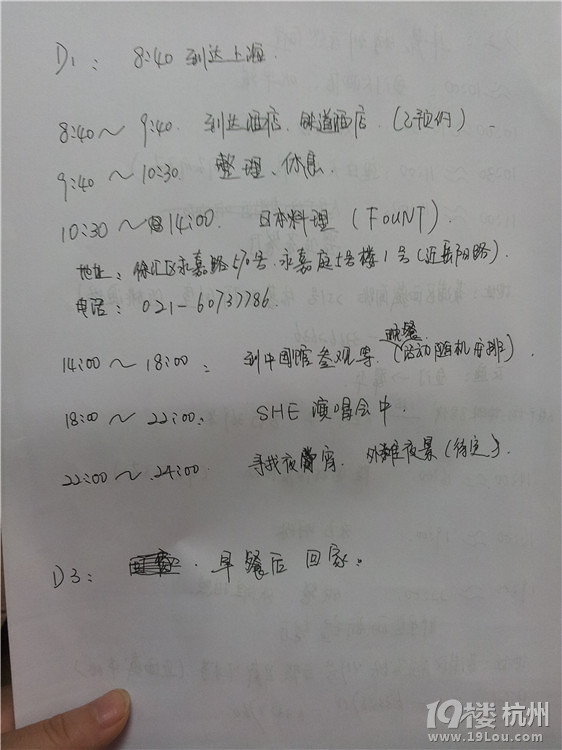 D1: 8:40 到达上海.
8:40～9:40. 到达酒店、 酒店. (已预约).
9:40～10:30 整理、休息.
10:30～14:00. 日本料理 (FOUNT)
地址: 徐汇区永嘉路570号.永嘉庭5号楼1号(近岳阳路).
电话: 021-60737786.
晚餐
14:00～18:00: 到中国馆参观等. (活动随机安排).
18:00～22:00: SHE 演唱会中.
22:00～24:00. 寻找夜宵. 外滩夜景(待定).
D3: 早餐后 回家.
19楼 杭州
www.19Lou.com